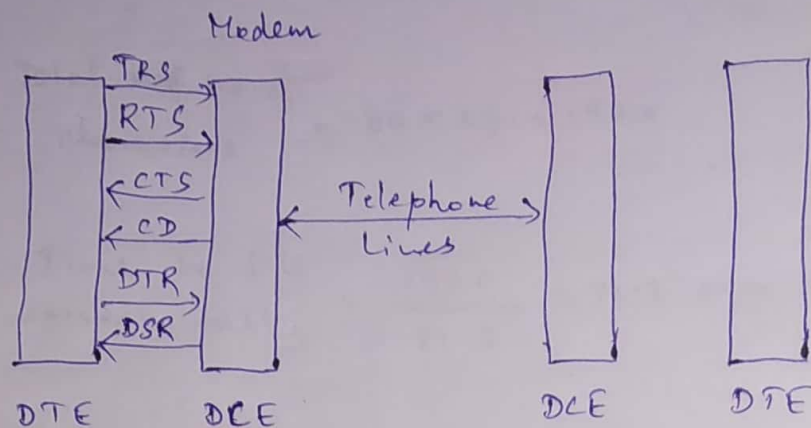 Modem
TRS
RTS
CTS
CD
DTR
DSR
Telephone
Lines
DTE DCE DCE DTE